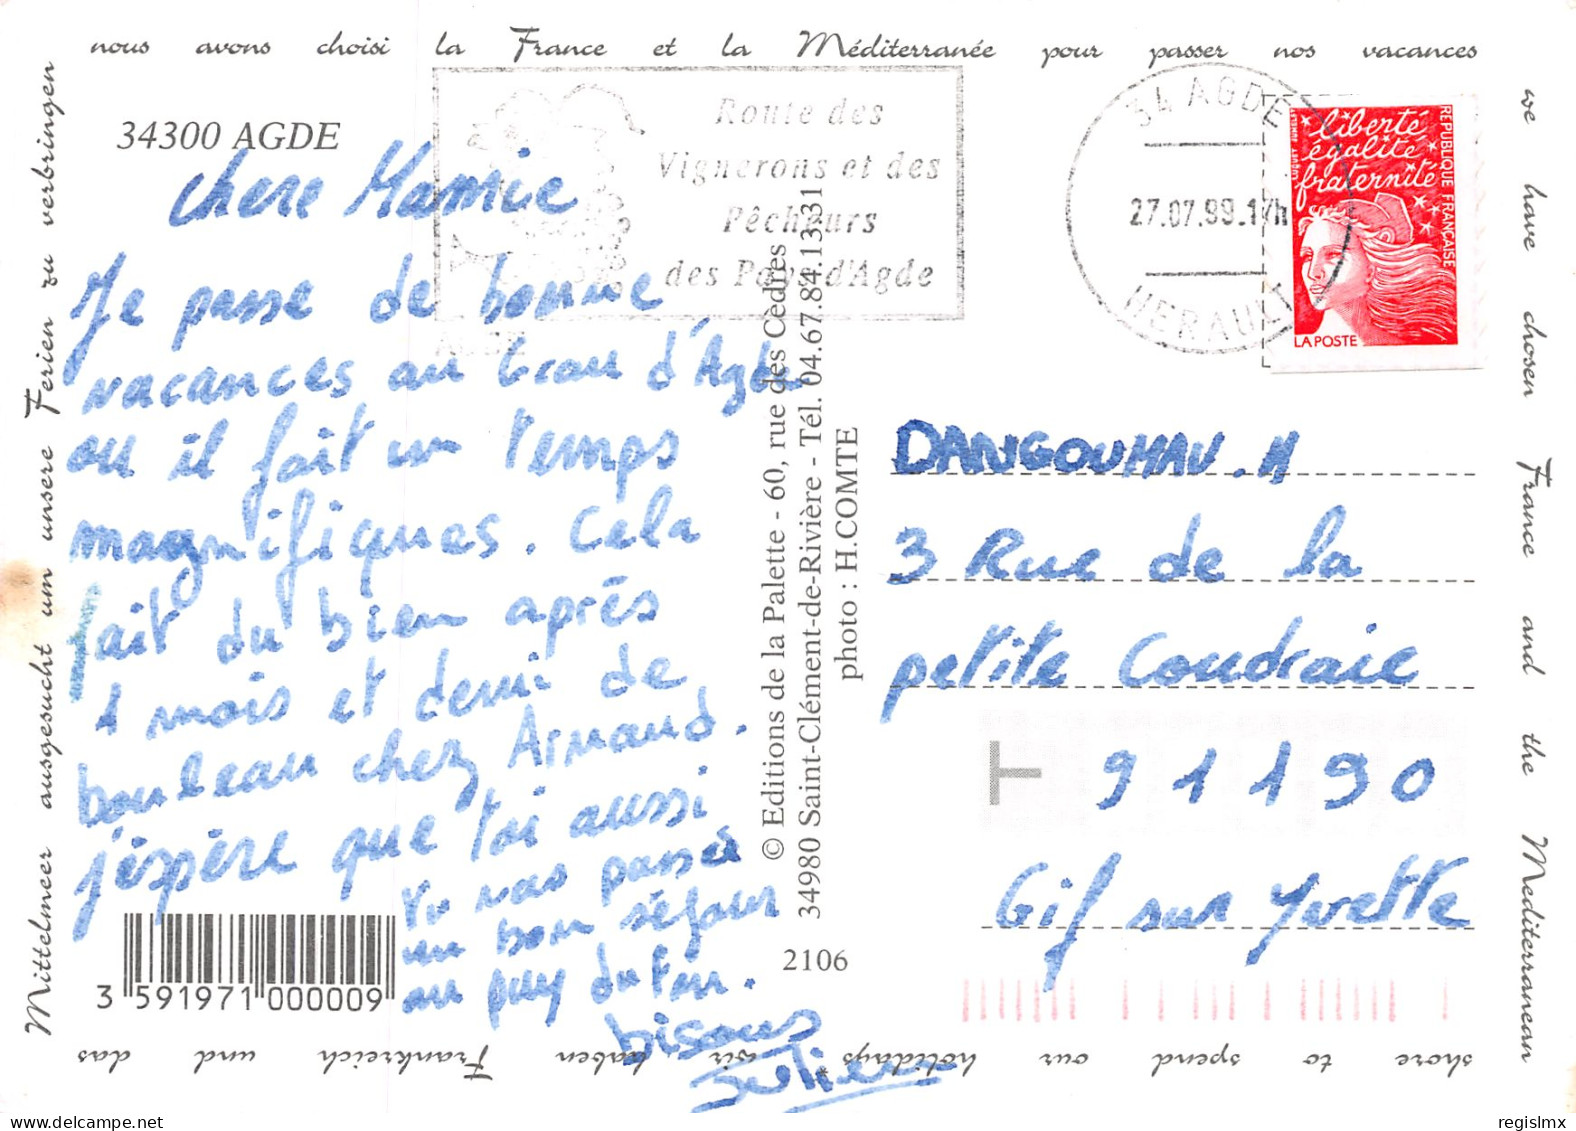 nous avons choisi la France et la Méditerranée pour passer nos vacances
we have chosen France and the Mediterranean
shore to spend our holidays * wir haben Frankreich und das
Mittelmeer ausgesucht um unsere Ferien zu verbringen
34300 AGDE
Route des
Vignerons et des
Pêcheurs
des Pays d'Agde
AGDE
34 AGDE
27.07.99.17h
HERAULT
liberté
égalité
fraternité
RÉPUBLIQUE FRANÇAISE
LA POSTE
chere Mamie
Je passe de bonne
vacances au Grau d'Agde
ou il fait un temps
magnifiques. Cela
fait du bien après
1 mois et demi de
bouleau chez Arnaud.
j'éspère que toi aussi
tu vas passer
un bon séjour
au puy du fou.
bisous
Julien
© Editions de la Palette - 60, rue des Cèdres
34980 Saint-Clément-de-Rivière - Tél. 04.67.84.13.31
photo : H.COMTE
2106
DANGOUMAU. M
3 Rue de la
petite Coudraie
91190
Gif sur Yvette
3 591971 000009
regislmx